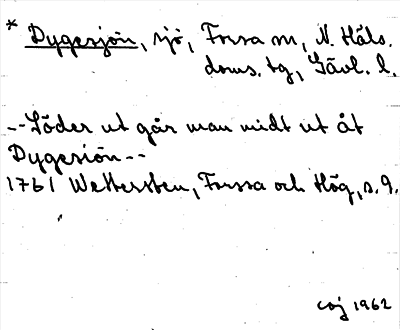 * Dygesjön, sjö, Forsa sn, N. Häls.
doms. tg, Gävl. l.
--Söder ut går man midt ut åt
Dygesiön--
1761 Wettersten, Forssa och Hög, s. 9.
caj 1962